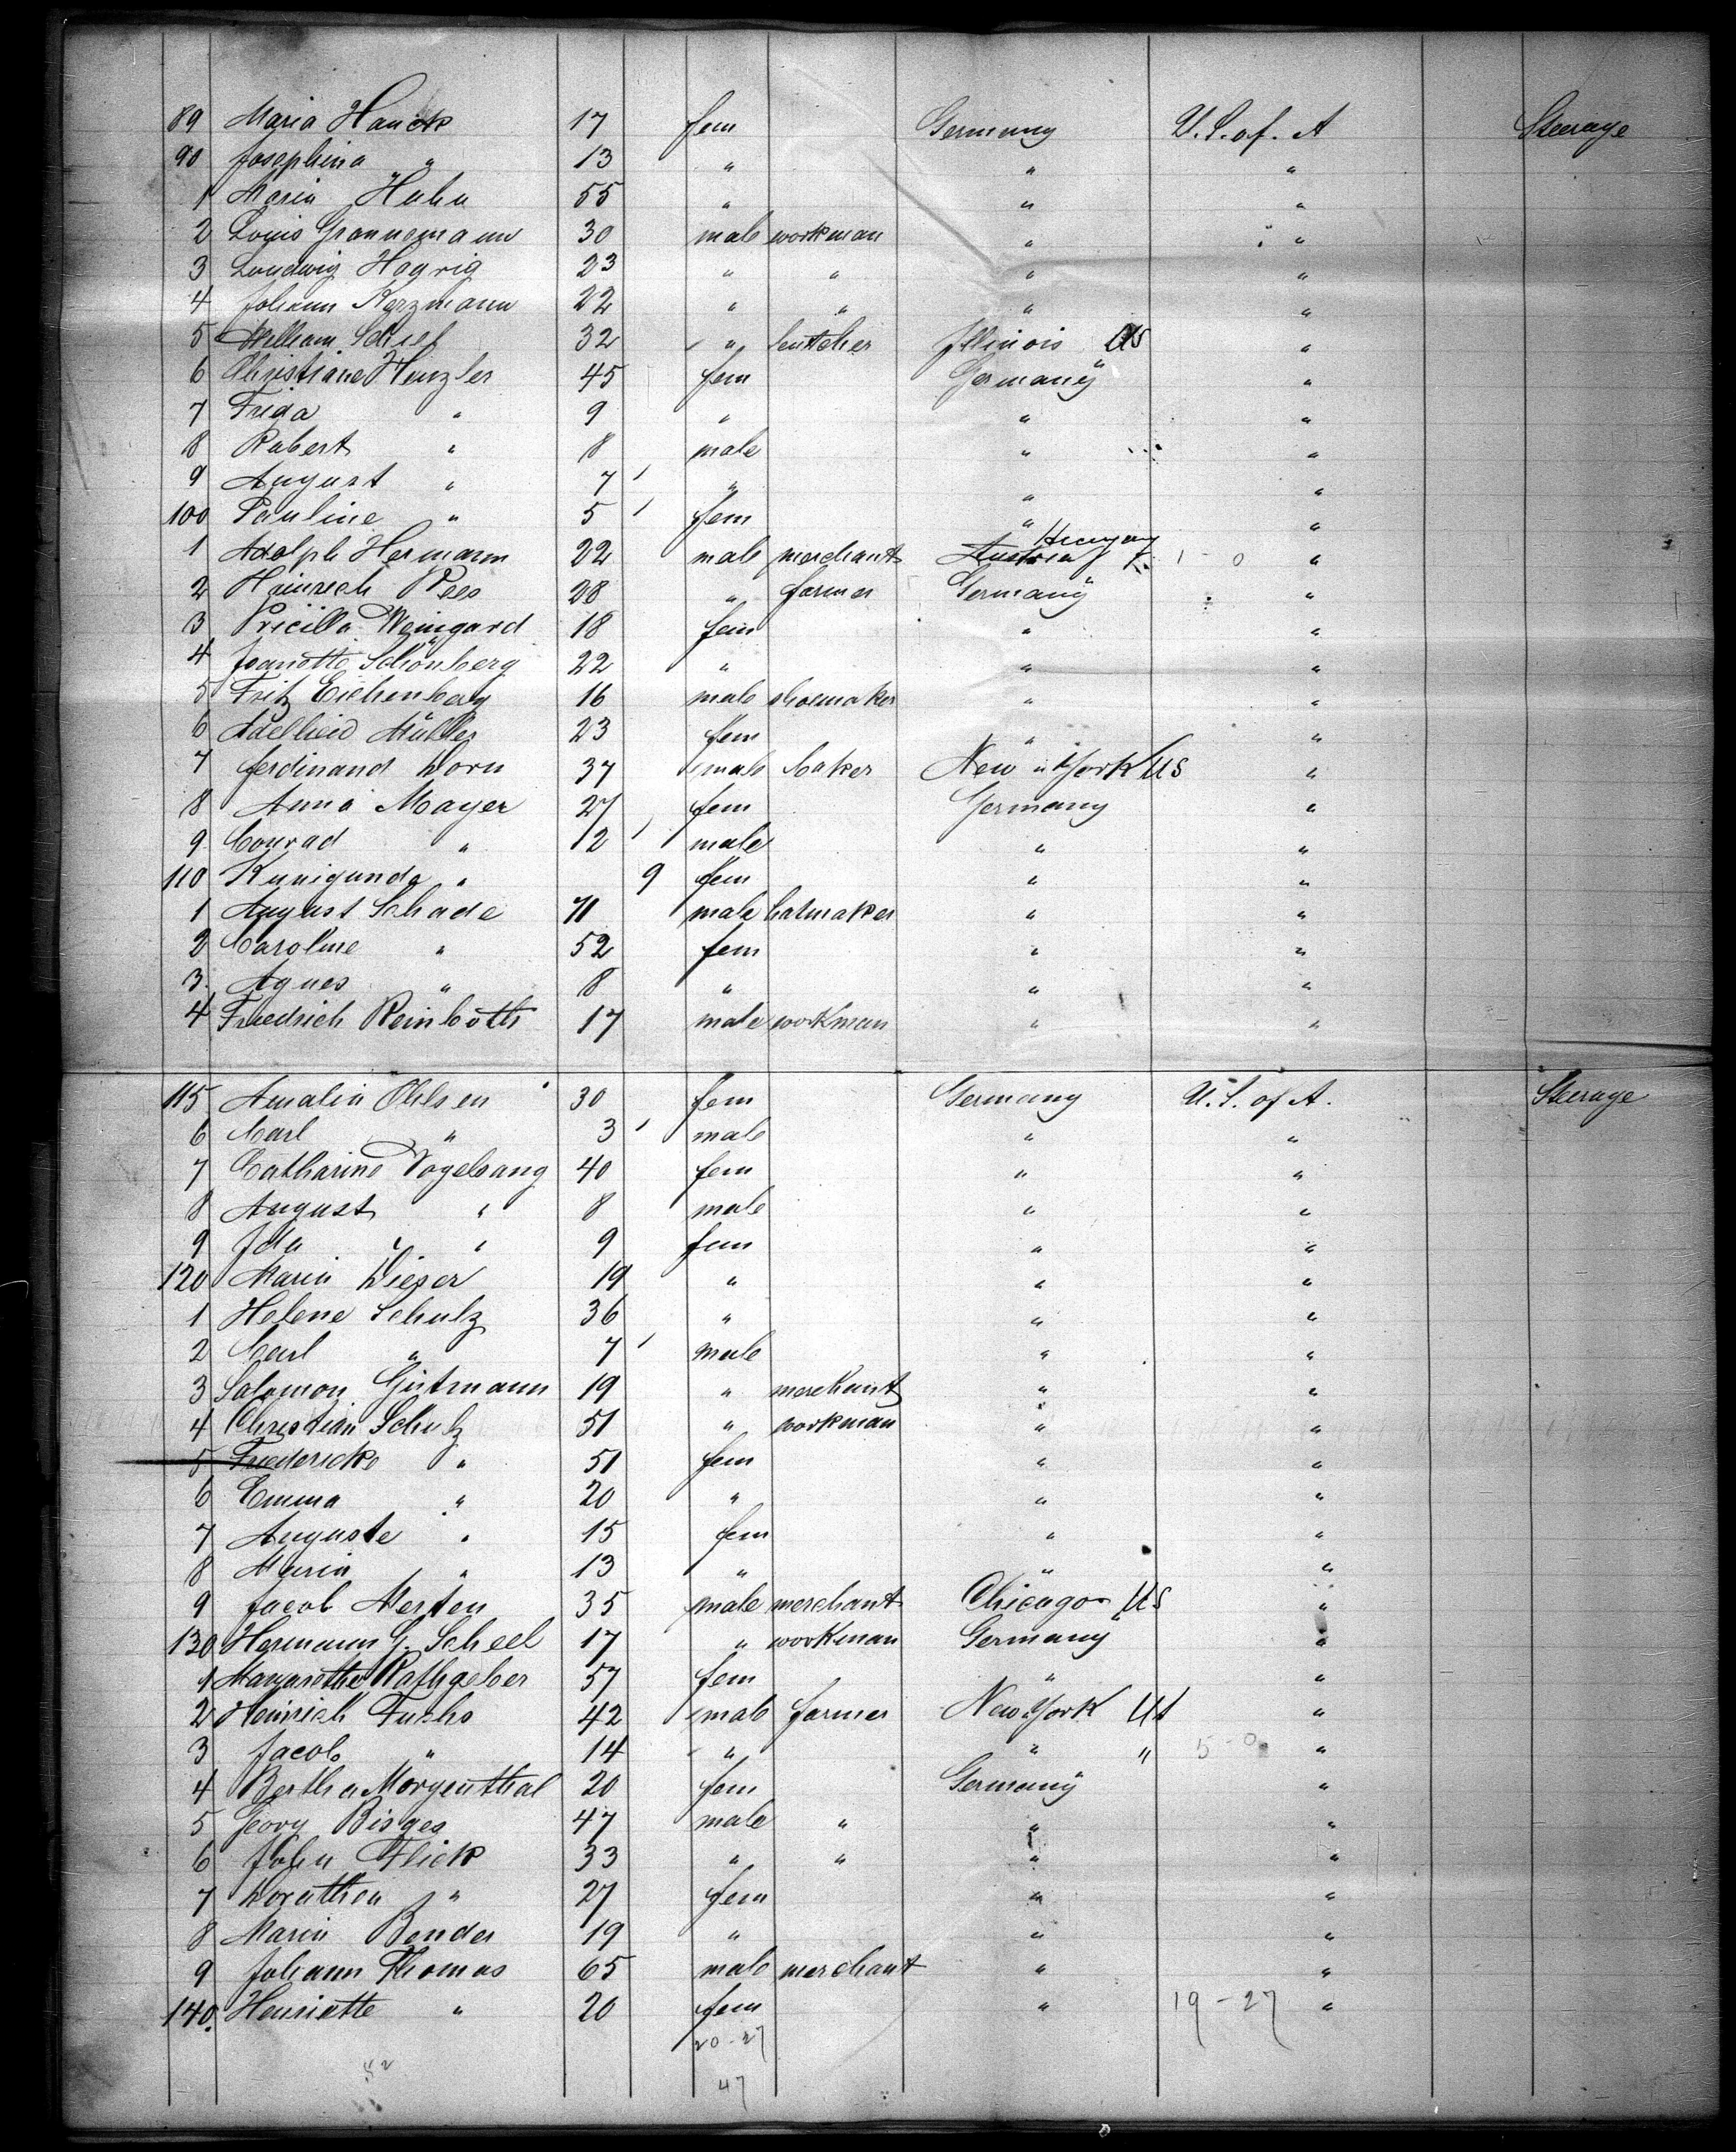 89 Maria Hauck 17 fem Germany U.S. of. A Steerage
90 Josephina " 13 " " "
1 Maria Hahn 55 " " "
2 Louis Grannemann 30 male workman " "
3 Loudwig Hagrig 23 " " " "
4 Johann Kerzmann 22 " " " "
5 William Schief 32 " butcher Illinois US "
6 Christiane Henzler 45 fem Germany "
7 Frida " 9 " " "
8 Robert " 8 male " "
9 August " 7 " " "
100 Pauline " 5 fem " "
1 Adolph Hermann 22 male merchant Austria Hungary 1 - 0 "
2 Heinrich Rees 28 " farmer Germany "
3 Pricilla Weingard 18 fem " "
4 Jeanette Schönberg 22 " " "
5 Fritz Eichenberg 16 male shoemaker " "
6 Adelheid Müller 23 fem " "
7 Ferdinand Dorn 37 male baker New York US "
8 Anna Mayer 27 fem Germany "
9 Conrad " 12 male " "
110 Kunigunda " 9 fem " "
1 August Schade 71 male hatmaker " "
2 Caroline " 52 fem " "
3. Agnes " 8 " " "
4 Friedrich Reinboth 17 male workman " "
115 Amalia Ohlsen 30 fem Germany U.S. of A. Steerage
6 Carl " 3 male " "
7 Catharine Vogelsang 40 fem " "
8 August " 8 male " "
9 Ida " " 9 fem " "
120 Maria Dieser 19 " " "
1 Helene Schulz 36 " " "
2 Carl " 7 male " "
3 Salomon Gutmann 19 " merchant " "
4 Christian Schulz 51 " workman " "
5 Friedericke " 51 fem " "
6 Emma " 20 " " "
7 Auguste " 15 fem " "
8 Maria " 13 " " "
9 Jacob Merten 35 male merchant Chicago US "
130 Hermann G. Scheel 17 " workman Germany "
1 Margarethe Rathgeber 57 fem " "
2 Heinrich Fuchs 42 male farmer New York US "
3 Jacob " 14 " " " 5 - 0 "
4 Bertha Morgenthal 20 fem Germany "
5 Georg Bisges 47 male " " "
6 John Flick 33 " " " "
7 Dorathea " 27 fem " "
8 Maria Bender 19 " " "
9 Johann Thomas 65 male merchant " "
140. Henriette " 20 fem " 19 - 27 "
20 - 27
52
47